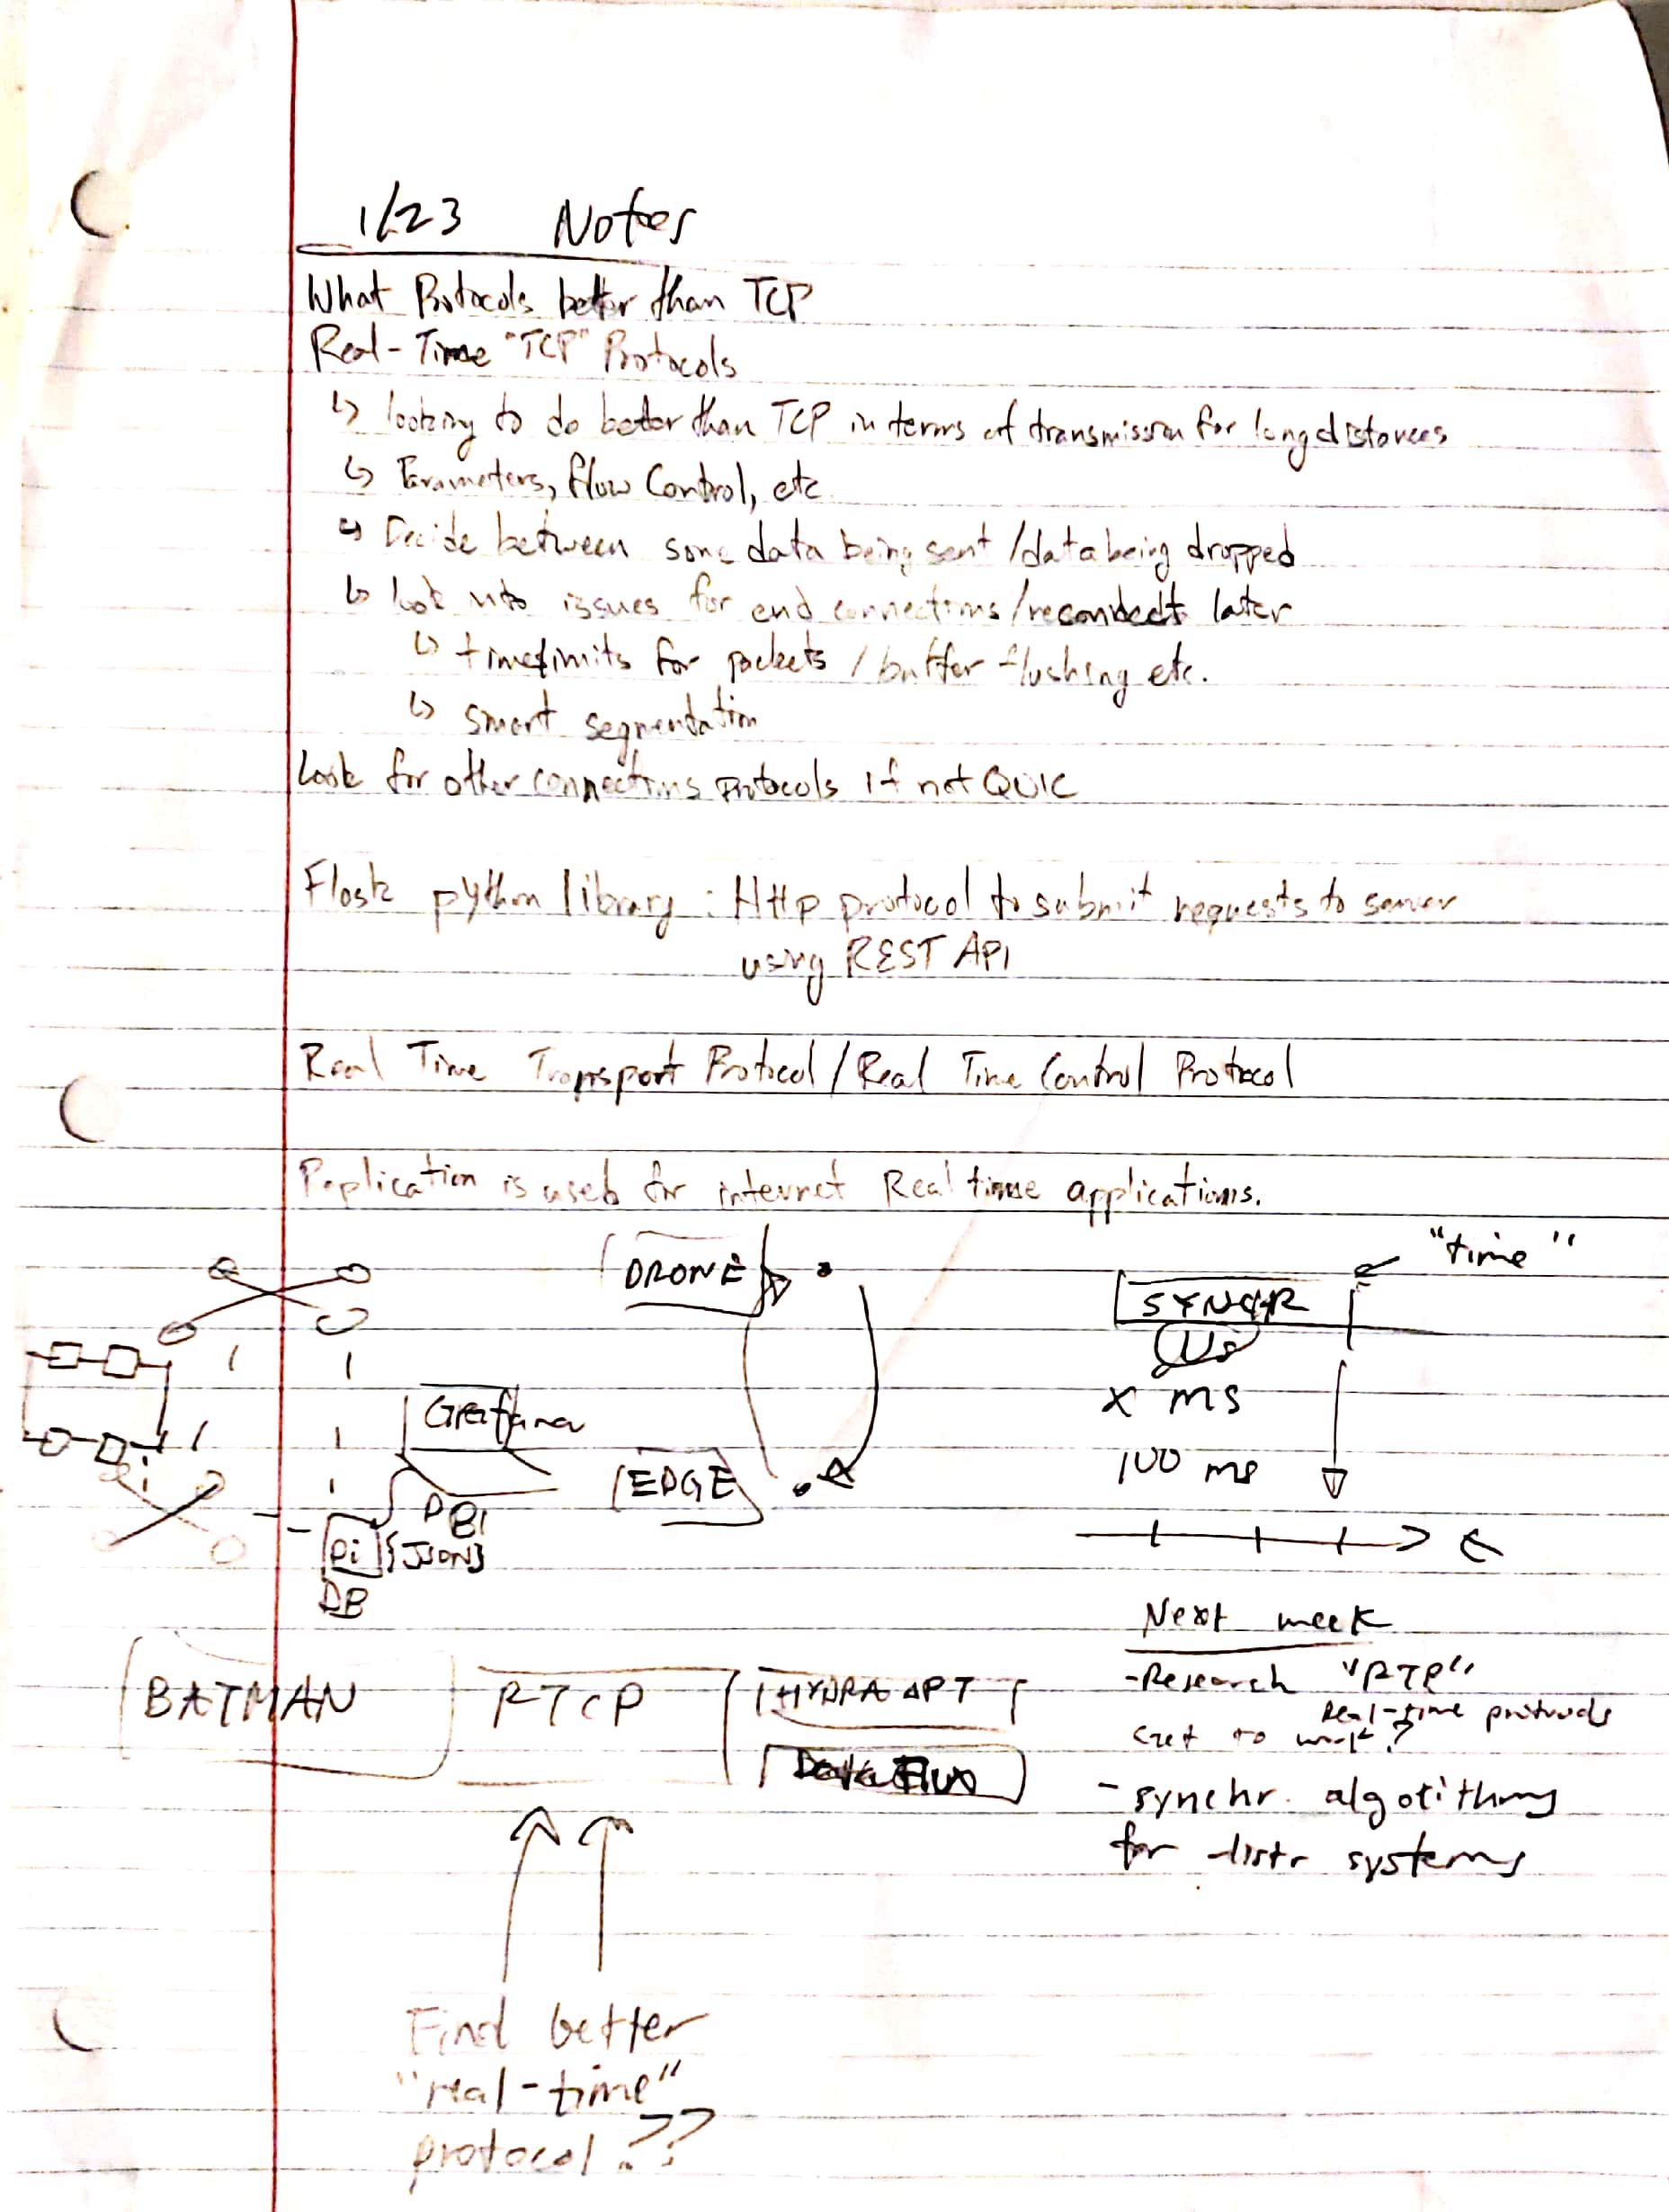 1/23 Notes
What Protocols better than TCP
Real-Time "TCP" Protocols
↳ looking to do better than TCP in terms of transmission for long distances
↳ Parameters, flow Control, etc.
↳ Decide between some data being sent / data being dropped
↳ look into issues for end connections / reconnects later
↳ timelimits for packets / buffer flushing etc.
↳ smart segmentation
Look for other connections protocols if not QUIC
Flask python library : Http protocol to submit requests to server
using REST API
Real Time Transport Protocol / Real Time Control Protocol
Replication is used for internet Real time applications.
DRONE
"time"
SYNCHR
X ms
Grafana
100 ms
EDGE
DB
Pi {JSON}
DB
t
Next week
BATMAN
RTCP
HYDRA API
Data Flux
- Research "RTP"
Real-time protocols
Get to work?
- synchr. algorithms
for distr systems
Find better
"real-time"
protocol ??